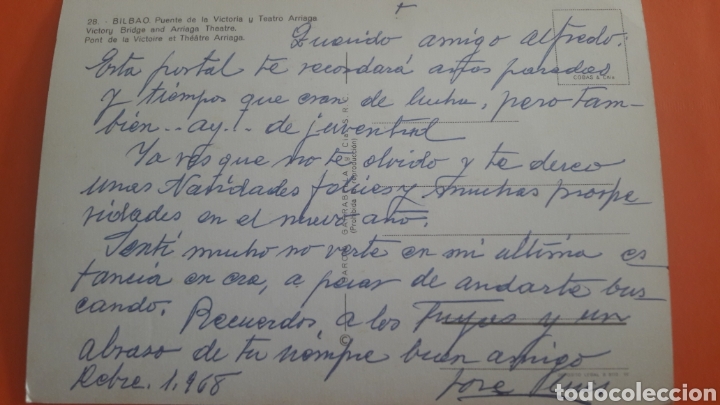 28. - BILBAO. Puente de la Victoria y Teatro Arriaga
Victory Bridge and Arriaga Theatre.
Pont de la Victoire et Théâtre Arriaga.
Querido amigo Alfredo:
Esta postal te recordará años pasados
y tiempos que eran de lucha, pero tam-
bién... ay!.. de juventud
Ya ves que no te olvido y te deseo
unas Navidades felices y muchas prospe
ridades en el nuevo año.
Sentí mucho no verte en mi última es
tancia en esa, a pesar de andarte bus
cando. Recuerdos, a los Tuyos y un
abraso de tu siempre buen amigo
Dcbre. 1.968
José
GARCIA GARRABELLA Y CIA
(Prohibida la reproducción)
todocoleccion